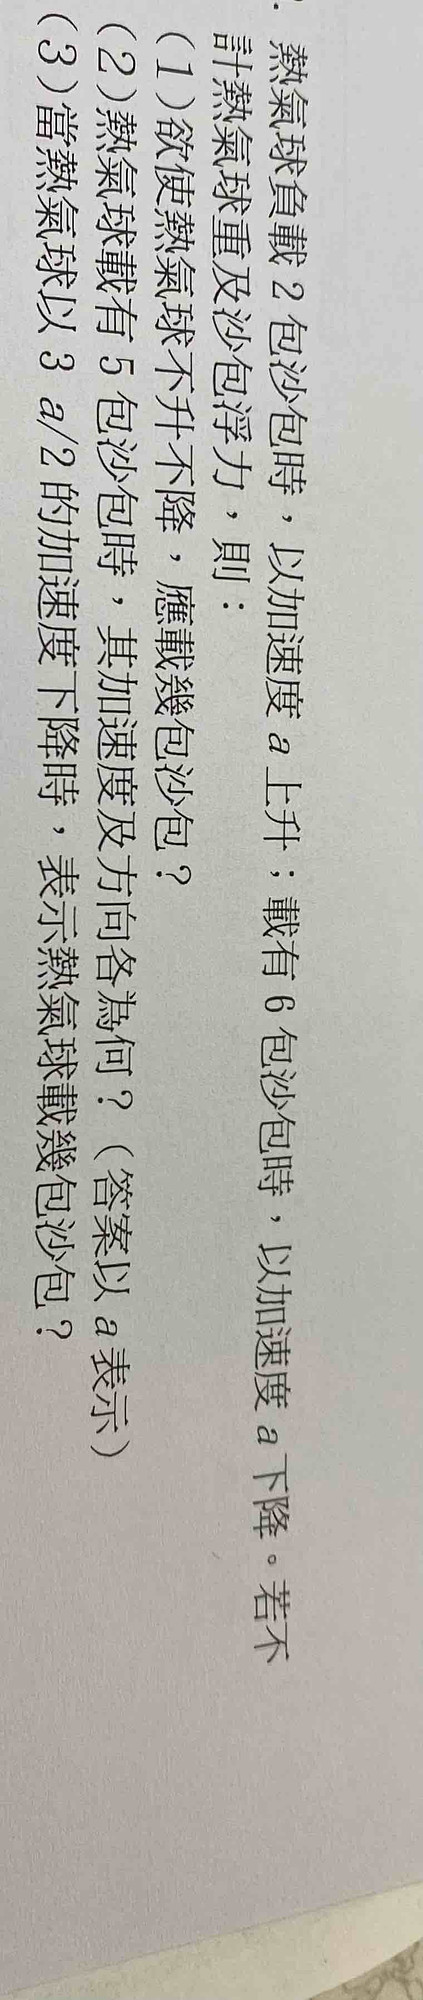 . 熱氣球負載 2 包沙包時，以加速度 a 上升；載有 6 包沙包時，以加速度 a 下降。若不
計熱氣球重及沙包浮力，則：
(1)欲使熱氣球不升不降，應載幾包沙包？
(2)熱氣球載有 5 包沙包時，其加速度及方向各為何？（答案以 a 表示）
(3)當熱氣球以 3 a/2 的加速度下降時，表示熱氣球載幾包沙包？